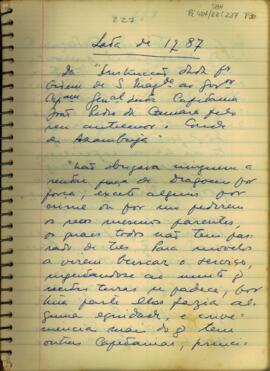 222
Lata de 1787
Da "Instrucção dada por
Ordem de S. Mag.de ao Gov.or
Capam General desta Capitania
João Pedro da Camara pelo
seu antecessor o Conde
de Azambuja"
"Não obrigava ninguem a
sentar praça de Dragoens por
força, exceto alguns por
crime ou por mo pedirem
os seos mesmos parentes
os quais todos não tem pas-
sado de tres. Para movelos
a virem buscar o serviço,
augentandose ao mento q
nestas terras se padece, por
hũa parte elles fazia al-
guma equidade, e conve-
niencia mais do q tem
outras Capitanias, princi-